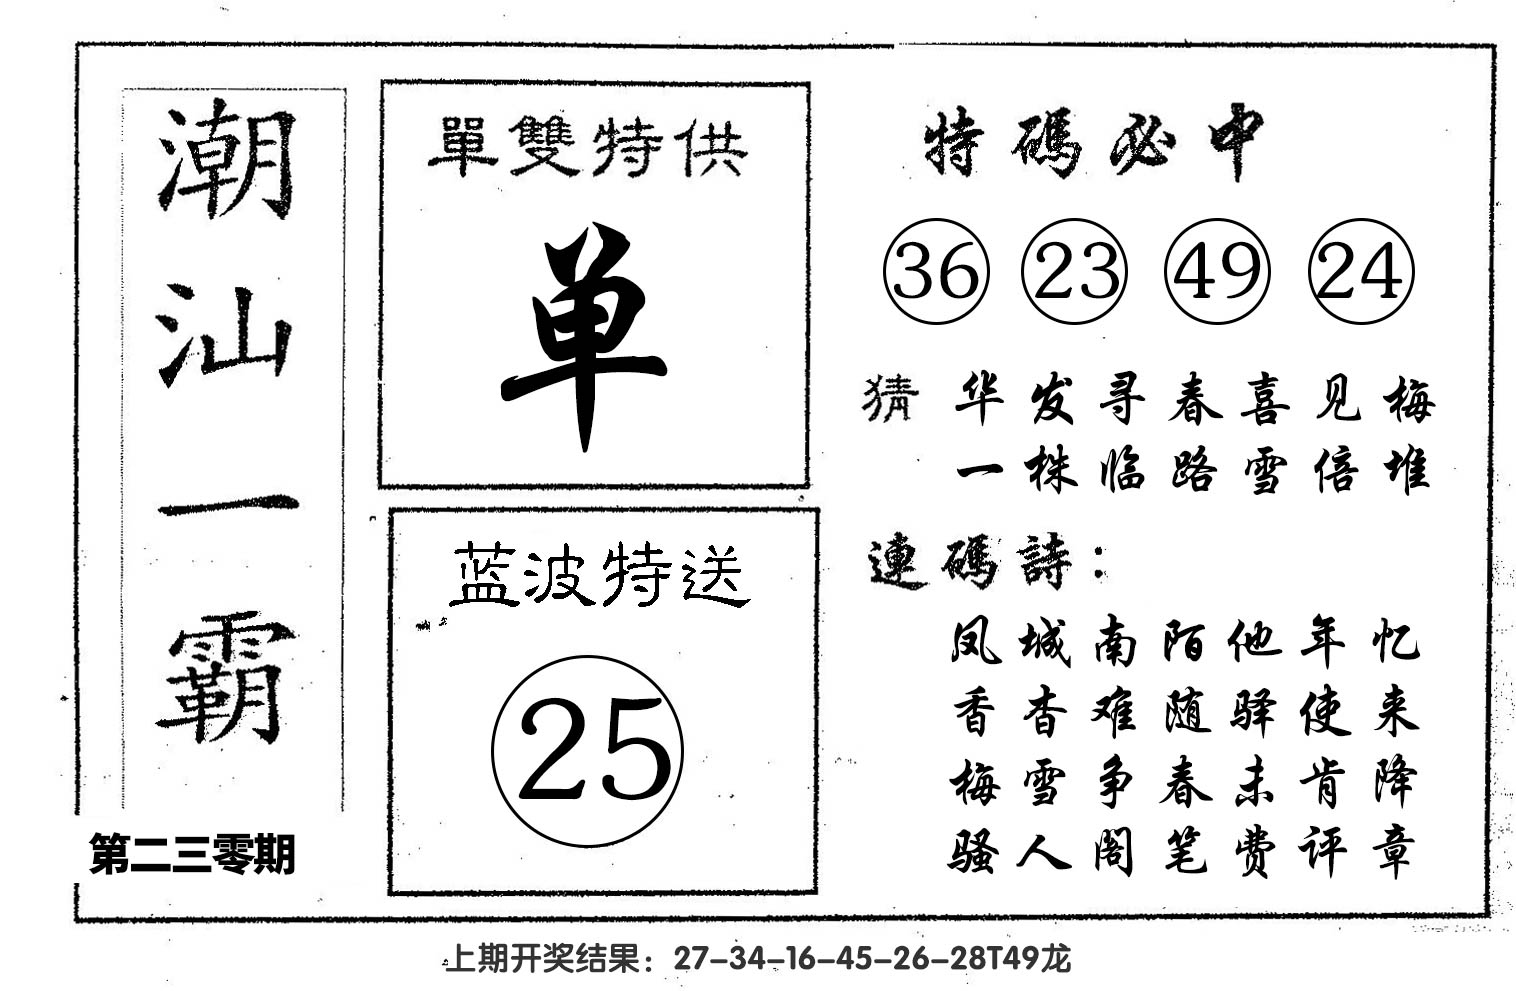 潮汕一霸
第二三零期
單雙特供
单
蓝波特送
25
特碼必中
36 23 49 24
猜 华发寻春喜见梅
一株临路雪倍堆
連碼詩：
凤城南陌他年忆
香杳难随驿使来
梅雪争春未肯降
骚人阁笔费评章
上期开奖结果：27-34-16-45-26-28T49龙